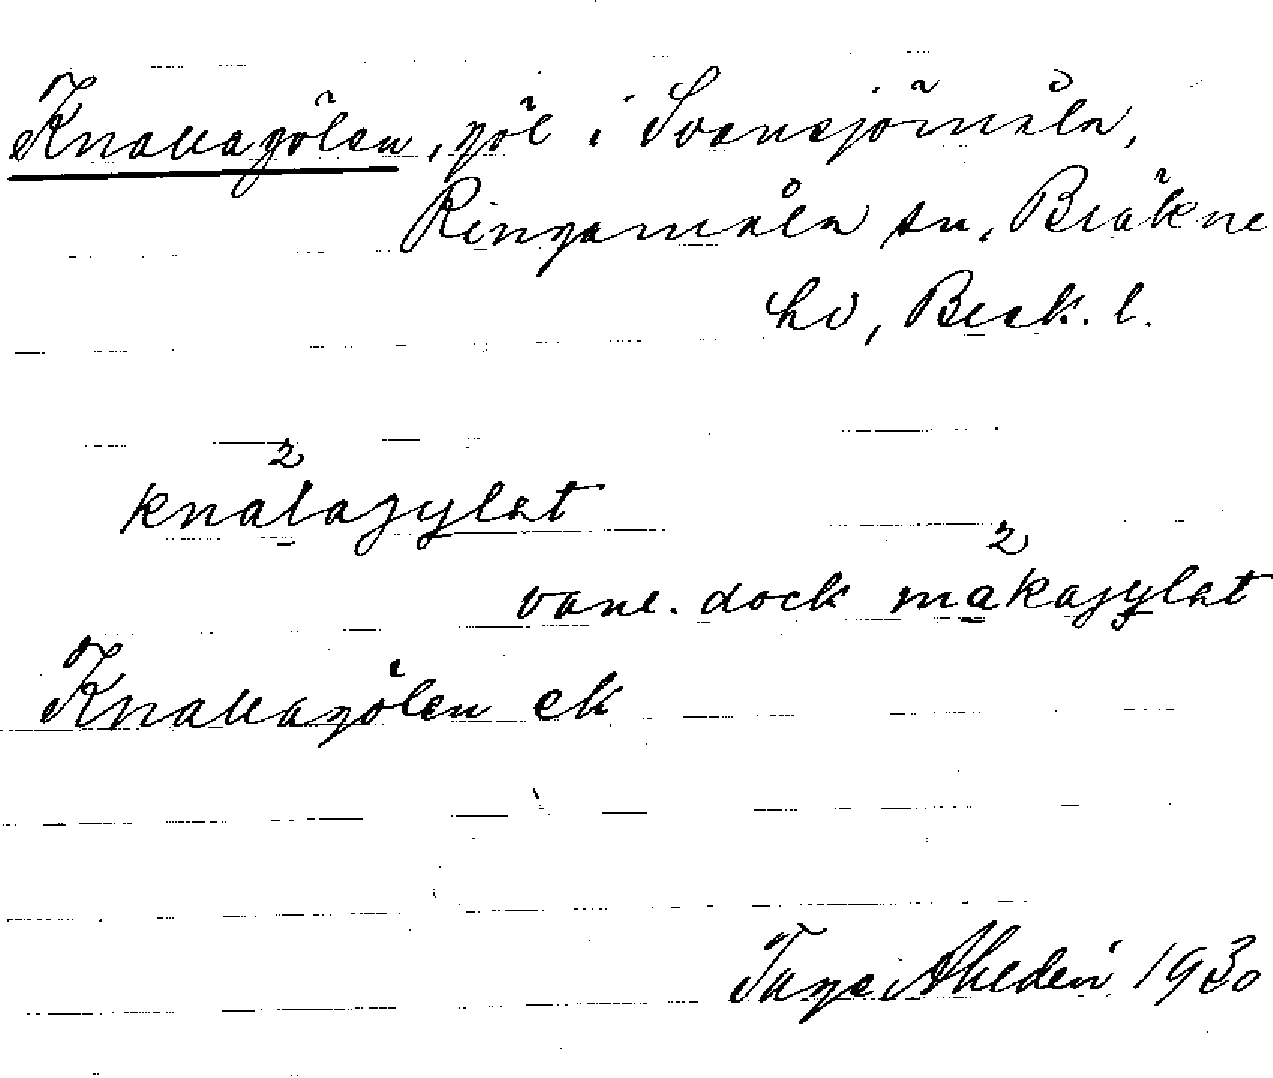 Knallagölen, göl i Svansjömåla,
Ringamåla sn, Bräkne
hd, Blek. l.
knalagylət
vanl. dock makagylət
Knallagölen ek
Tage Ahldén 1930